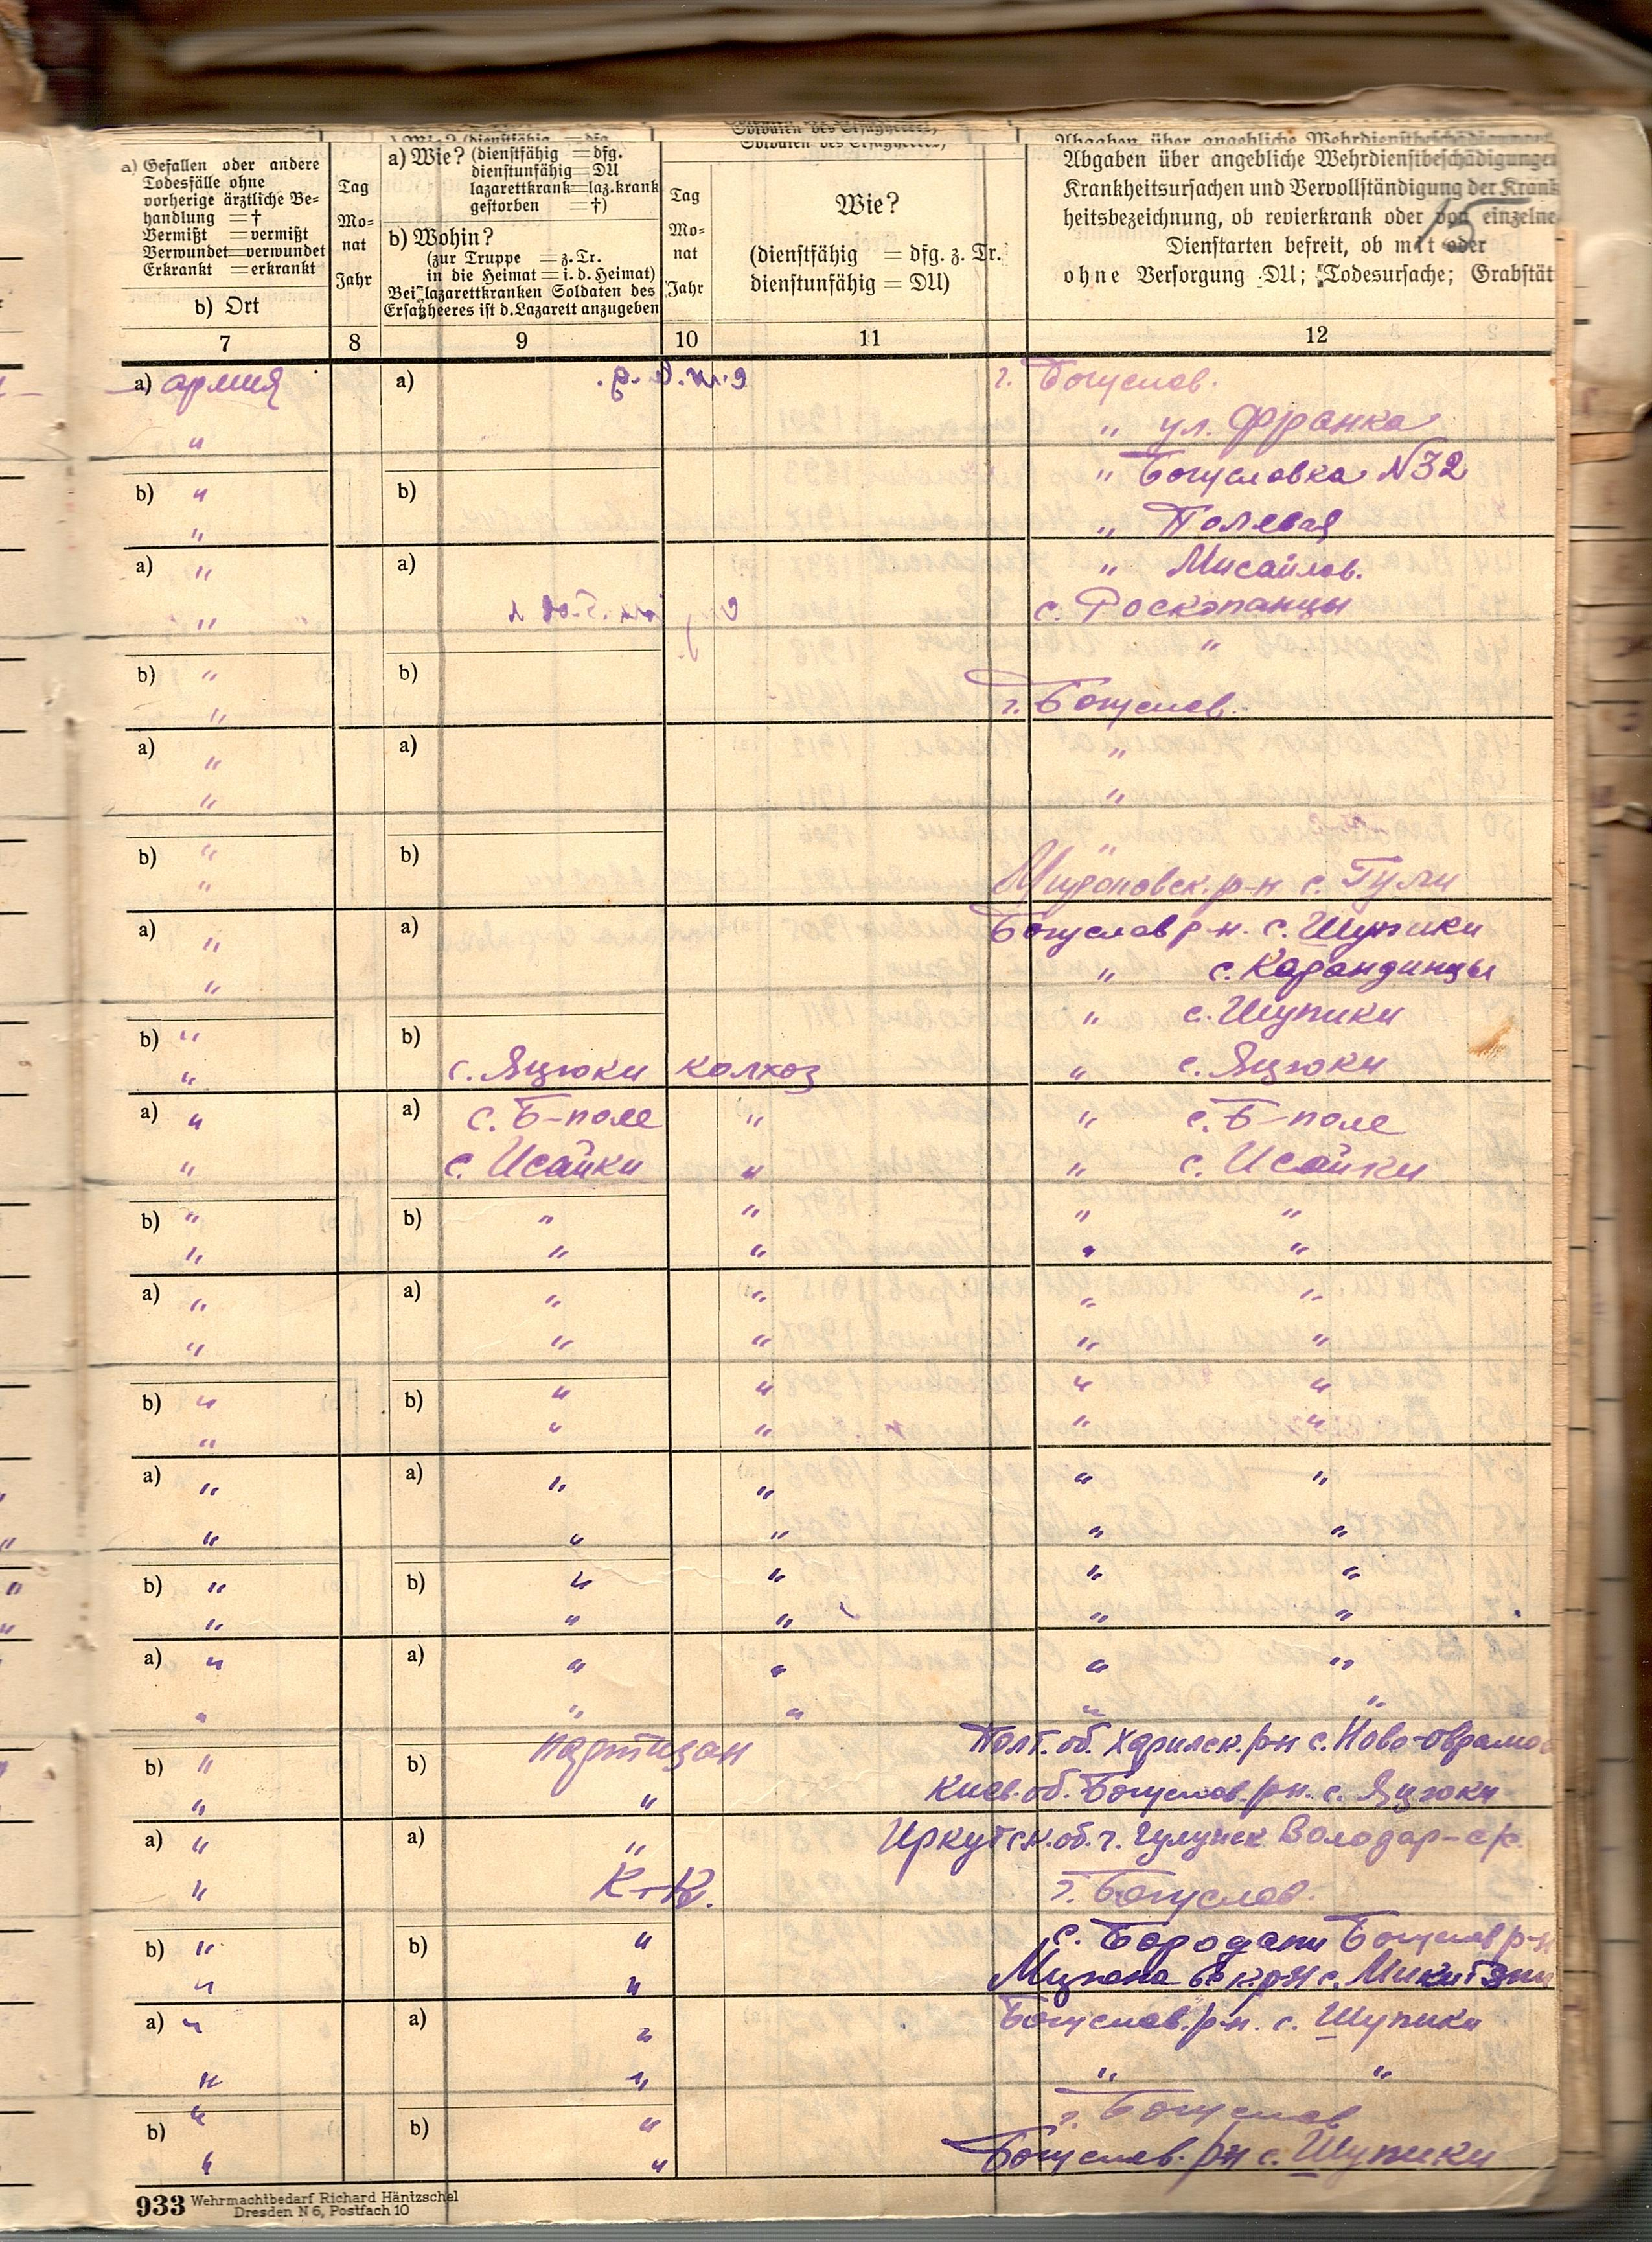 a) Gefallen oder andere
Todesfälle ohne
vorherige ärztliche Be-
handlung =†
Vermißt =vermißt
Verwundet=verwundet
Erkrankt =erkrankt
b) Ort
Tag
Mo-
nat
Jahr
a) Wie? (dienstfähig =dfg.
dienstunfähig=DU
lazarettkrank=laz.krank
gestorben =†)
b) Wohin?
(zur Truppe =z.Tr.
in die Heimat=i.d.Heimat)
Bei lazarettkranken Soldaten des
Ersatzheeres ist d.Lazarett anzugeben
Tag
Mo-
nat
Jahr
Soldaten des Ersatzheeres)
Wie?
(dienstfähig = dfg. z. Tr.
dienstunfähig = DU)
Abgaben über angebliche Wehrdienstbeschädigungen
Krankheitsursachen und Vervollständigung der Krank
heitsbezeichnung, ob revierkrank oder von einzelne
Dienstarten befreit, ob mit oder
ohne Versorgung DU; Todesursache; Grabstät
15
7 8 9 10 11 12
a) армия a) г. Богуслав.
" " ул. Франка
" Богуславка N32
b) " b)
" " Полевая
a) " a) " Мисайлов.
" с. Роскопанцы
"
b) " b)
" г. Богуслав.
a) " a) "
" "
b) " b)
" Мироновск. р-н с. Тули
a) " a) Богуслав р-н. с. Шупики
" " с. Карандинцы
" с. Шупики
b) " b)
" с. Яцюки колхоз " с. Яцюки
a) " a) с. Б-поле " " с. Б-поле
" с. Исайки " " с. Исайки
b) " b) " " " "
" " " " "
a) " a) " " " "
" " " " "
b) " b) " " " "
" " " " "
a) " a) " " " "
" " " " "
b) " b) " " " "
" " " " "
a) " a) " " " "
" " " " "
b) " b) партизан Полт. об. Харилск. р-н с. Ново-
" " Киев. об. Богуслав. р-н. с. Яцюки
a) " a) " Иркутск. об. г. Володар-
" К-К. г. Богуслав.
b) " b) " с. Бородани Богуслав р-н
" " р-н с.
a) " a) " Богуслав. р-н. с. Шупики
" " " "
b) " b) " г. Богуслав
" " Богуслав. р-н с. Шупики
933 Wehrmachtbedarf Richard Häntzschel
Dresden N 6, Postfach 10